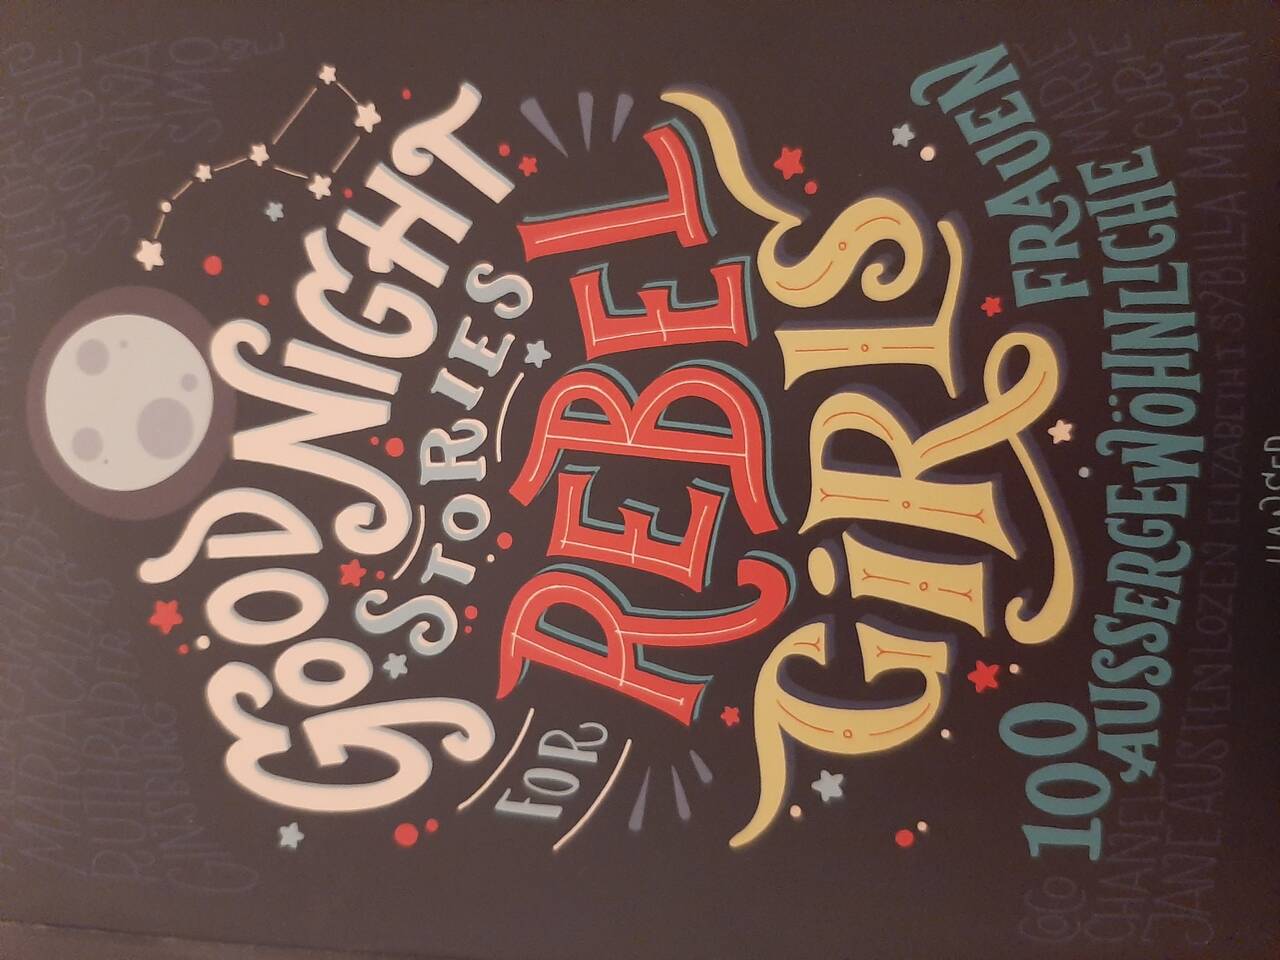 GOOD NIGHT
STORIES
FOR
REBEL
GiRLS
100 FRAUEN
AUSSERGEWÖHNLICHE
MARIE
CURIE
RUTH BADER
GINSBURG
COCO
CHANEL
JANE AUSTEN LOZEN ELIZABETH I SYBILLA MERIAN
HANSER